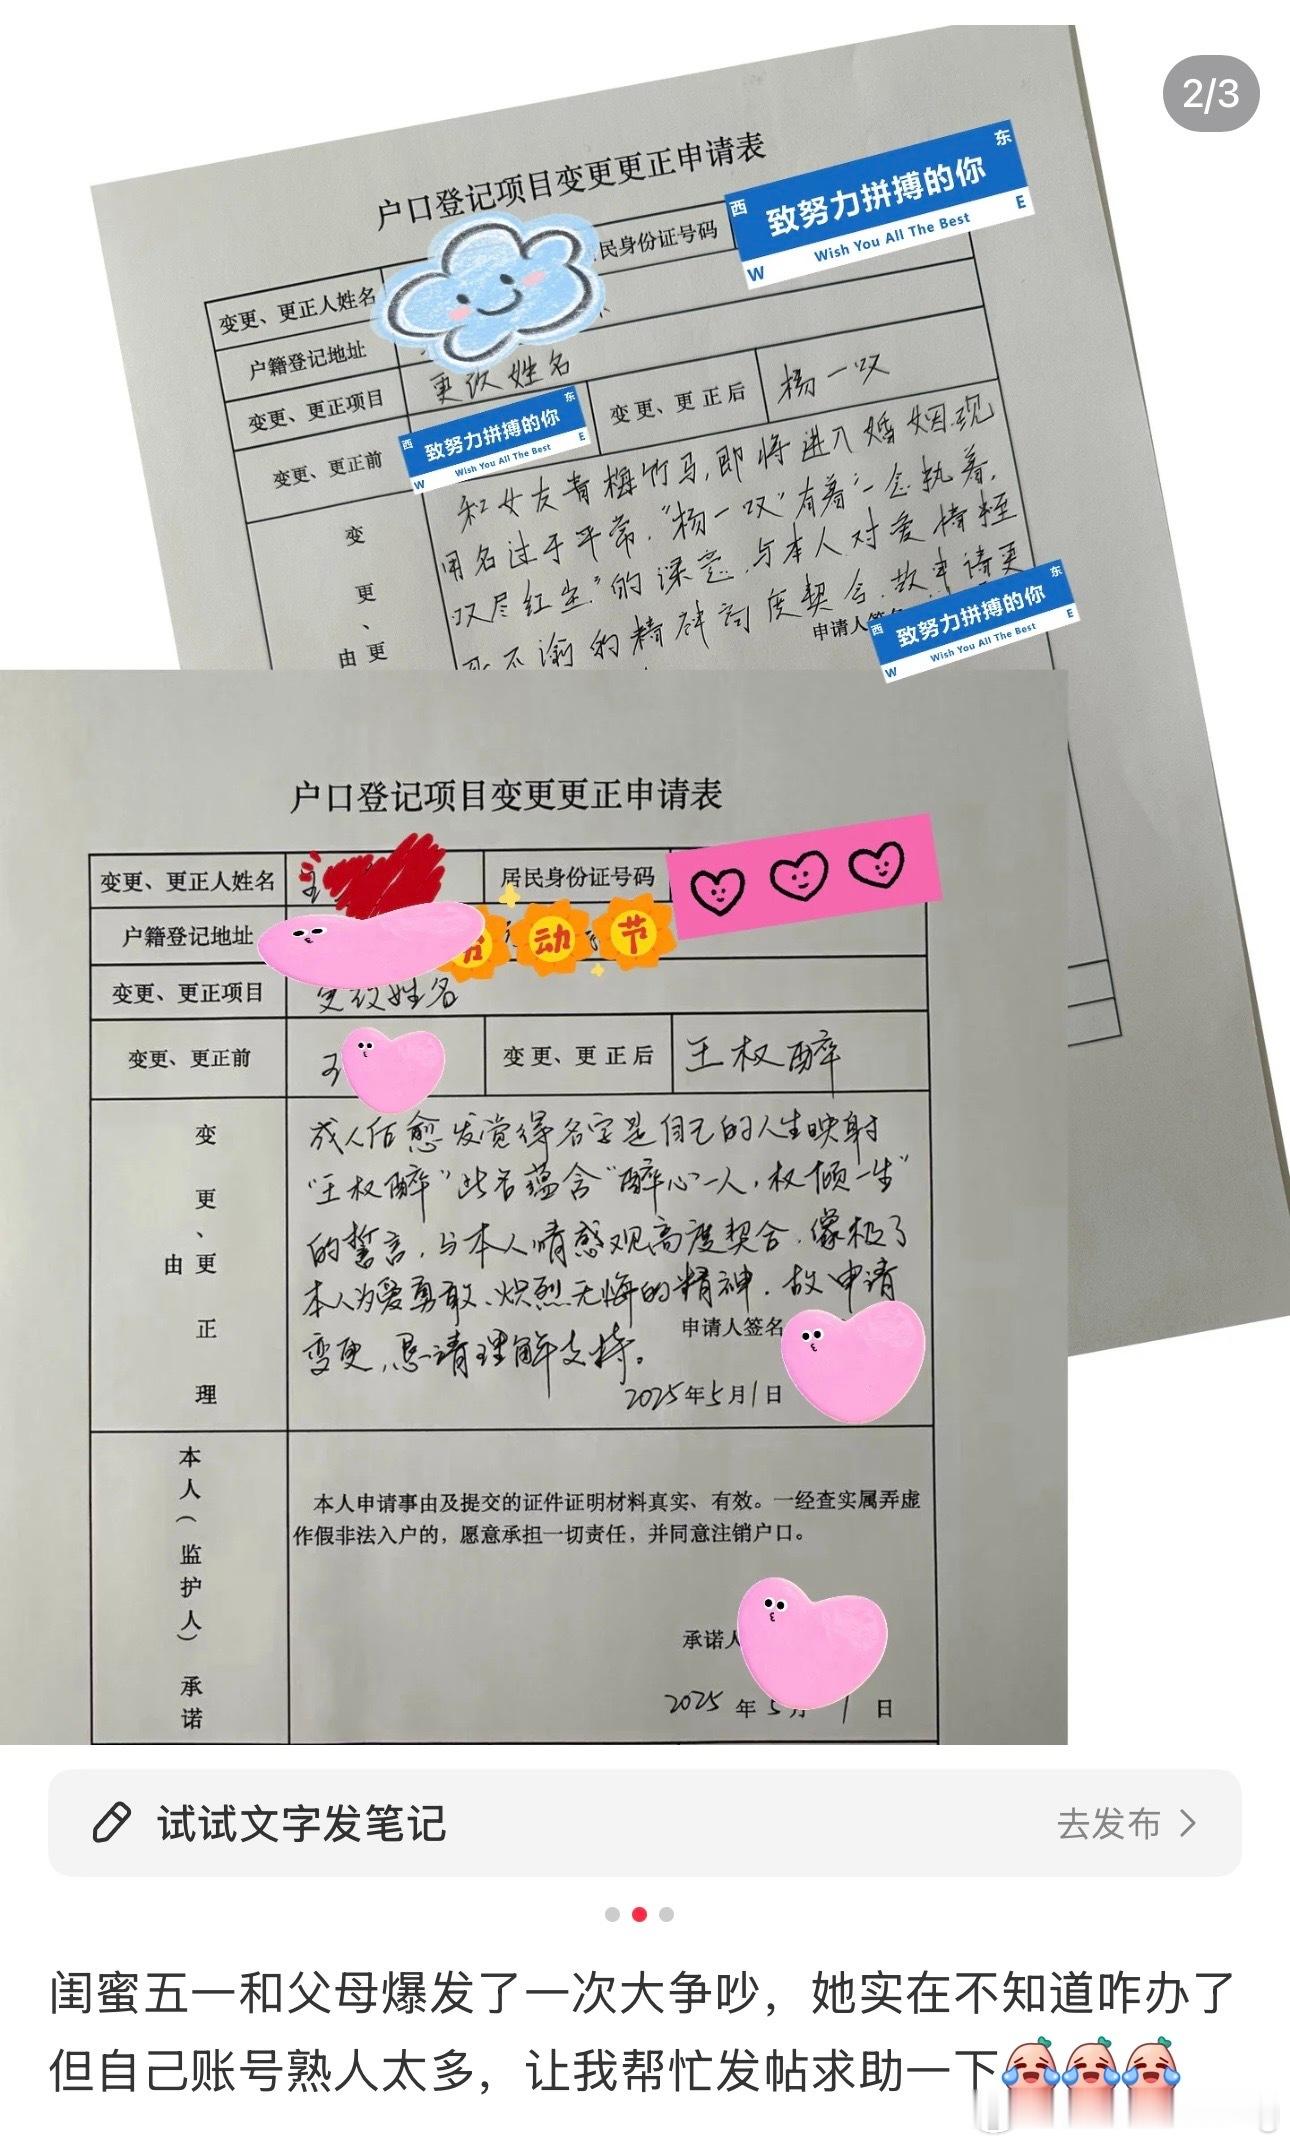 2/3
户口登记项目变更更正申请表
东
西
致努力拼搏的你
E
Wish You All The Best
W
变更、更正人姓名
民身份证号码
户籍登记地址
变更、更正项目
更改姓名
变更、更正前
东
西
致努力拼搏的你
E
Wish You All The Best
W
变更、更正后
杨一叹
变
更
、
由 更
和女友青梅竹马,即将进入婚姻.现
用名过于平常."杨一叹"有着"一念执着,
叹尽红尘"的深意,与本人对爱情坚
不渝的精神高度契合.故申请更
申请人签名
东
西
致努力拼搏的你
E
Wish You All The Best
W
户口登记项目变更更正申请表
变更、更正人姓名
居民身份证号码
户籍登记地址
劳动节
变更、更正项目
更改姓名
变更、更正前
王
变更、更正后
王权醉
变
更
、
由 更
正
理
成人后愈发觉得名字是自己的人生映射
"王权醉"此名蕴含"醉心一人,权倾一生"
的誓言,与本人情感观高度契合.像极了
本人为爱勇敢、炽烈无悔的精神.故申请
变更,恳请理解支持。
申请人签名
2025年5月1日
本
人
(
监
护
人
)
承
诺
本人申请事由及提交的证件证明材料真实、有效。一经查实属弄虚
作假非法入户的，愿意承担一切责任，并同意注销户口。
承诺人
2025 年 5 月 1 日
试试文字发笔记
去发布
闺蜜五一和父母爆发了一次大争吵，她实在不知道咋办了
但自己账号熟人太多，让我帮忙发帖求助一下